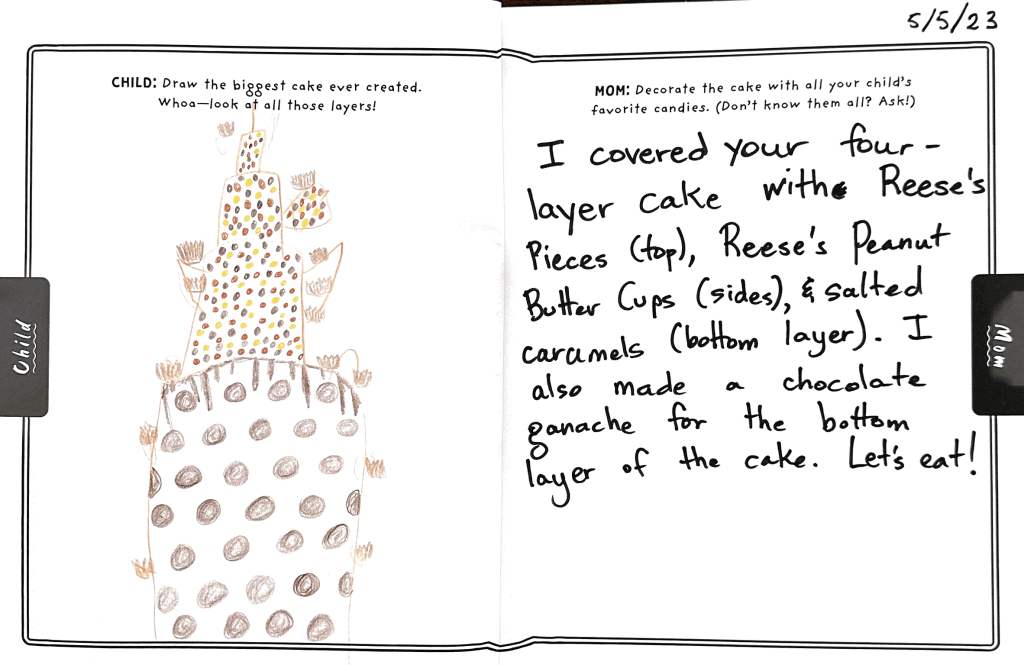 5/5/23
CHILD: Draw the biggest cake ever created.
Whoa—look at all those layers!
Child
MOM: Decorate the cake with all your child's
favorite candies. (Don't know them all? Ask!)
I covered your four-
layer cake with Reese's
Pieces (top), Reese's Peanut
Butter Cups (sides), & salted
caramels (bottom layer). I
also made a chocolate
ganache for the bottom
layer of the cake. Let's eat!
Mom